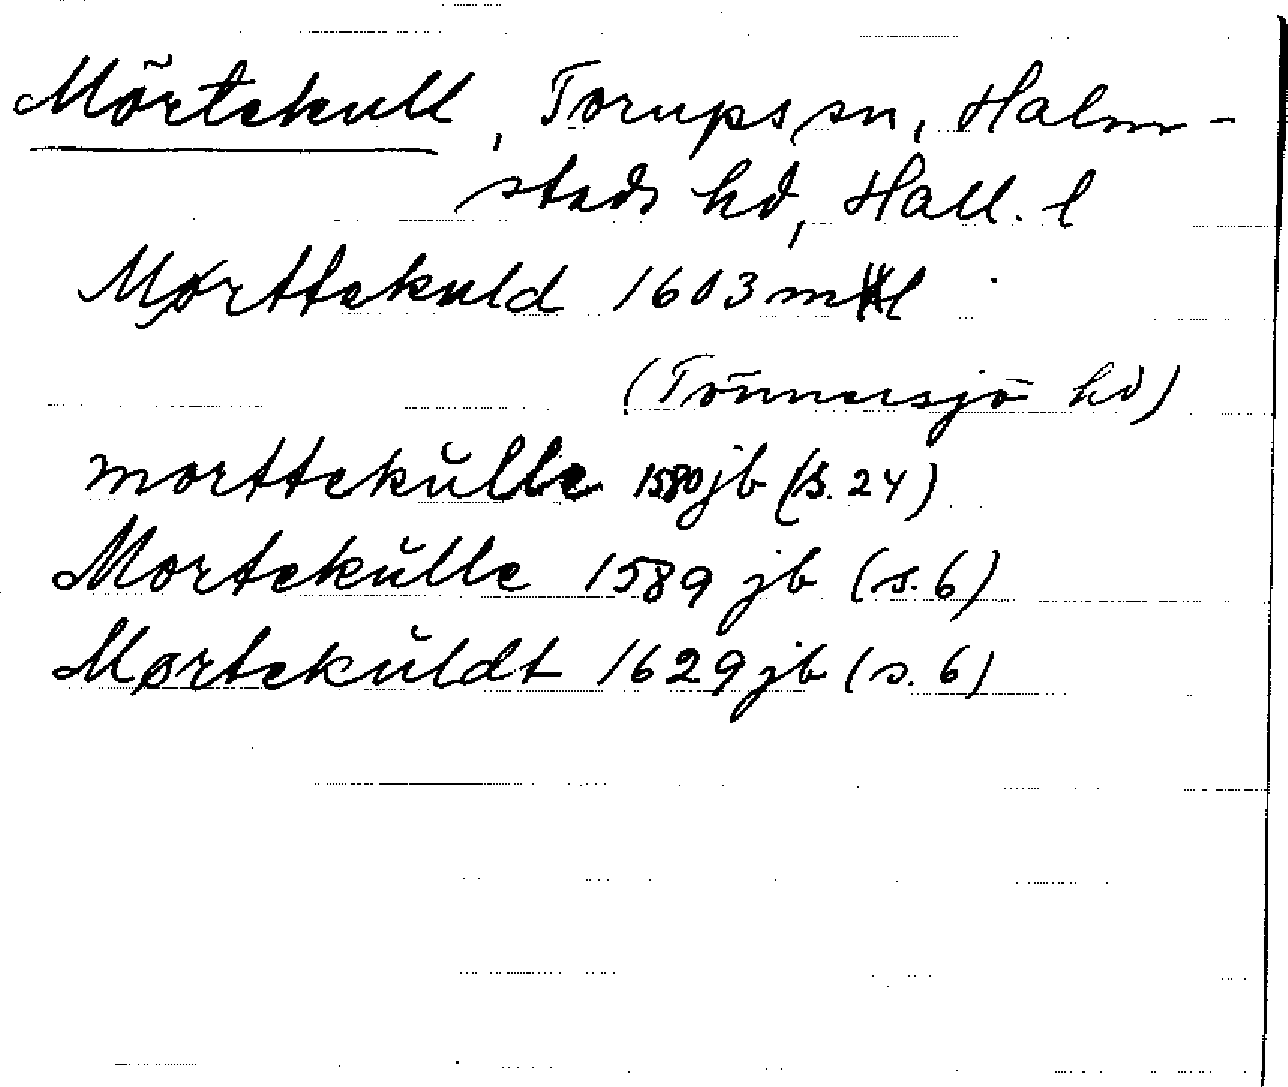 Mörtekull, Torups sn, Halm-
stads hd, Hall. l
Mørttekuld 1603 ml
(Tönnersjö hd)
morttekŭlle 1580 jb (s. 24)
Mortekŭlle 1589 jb (s. 6)
Mørtekŭldt 1629 jb (s. 6)